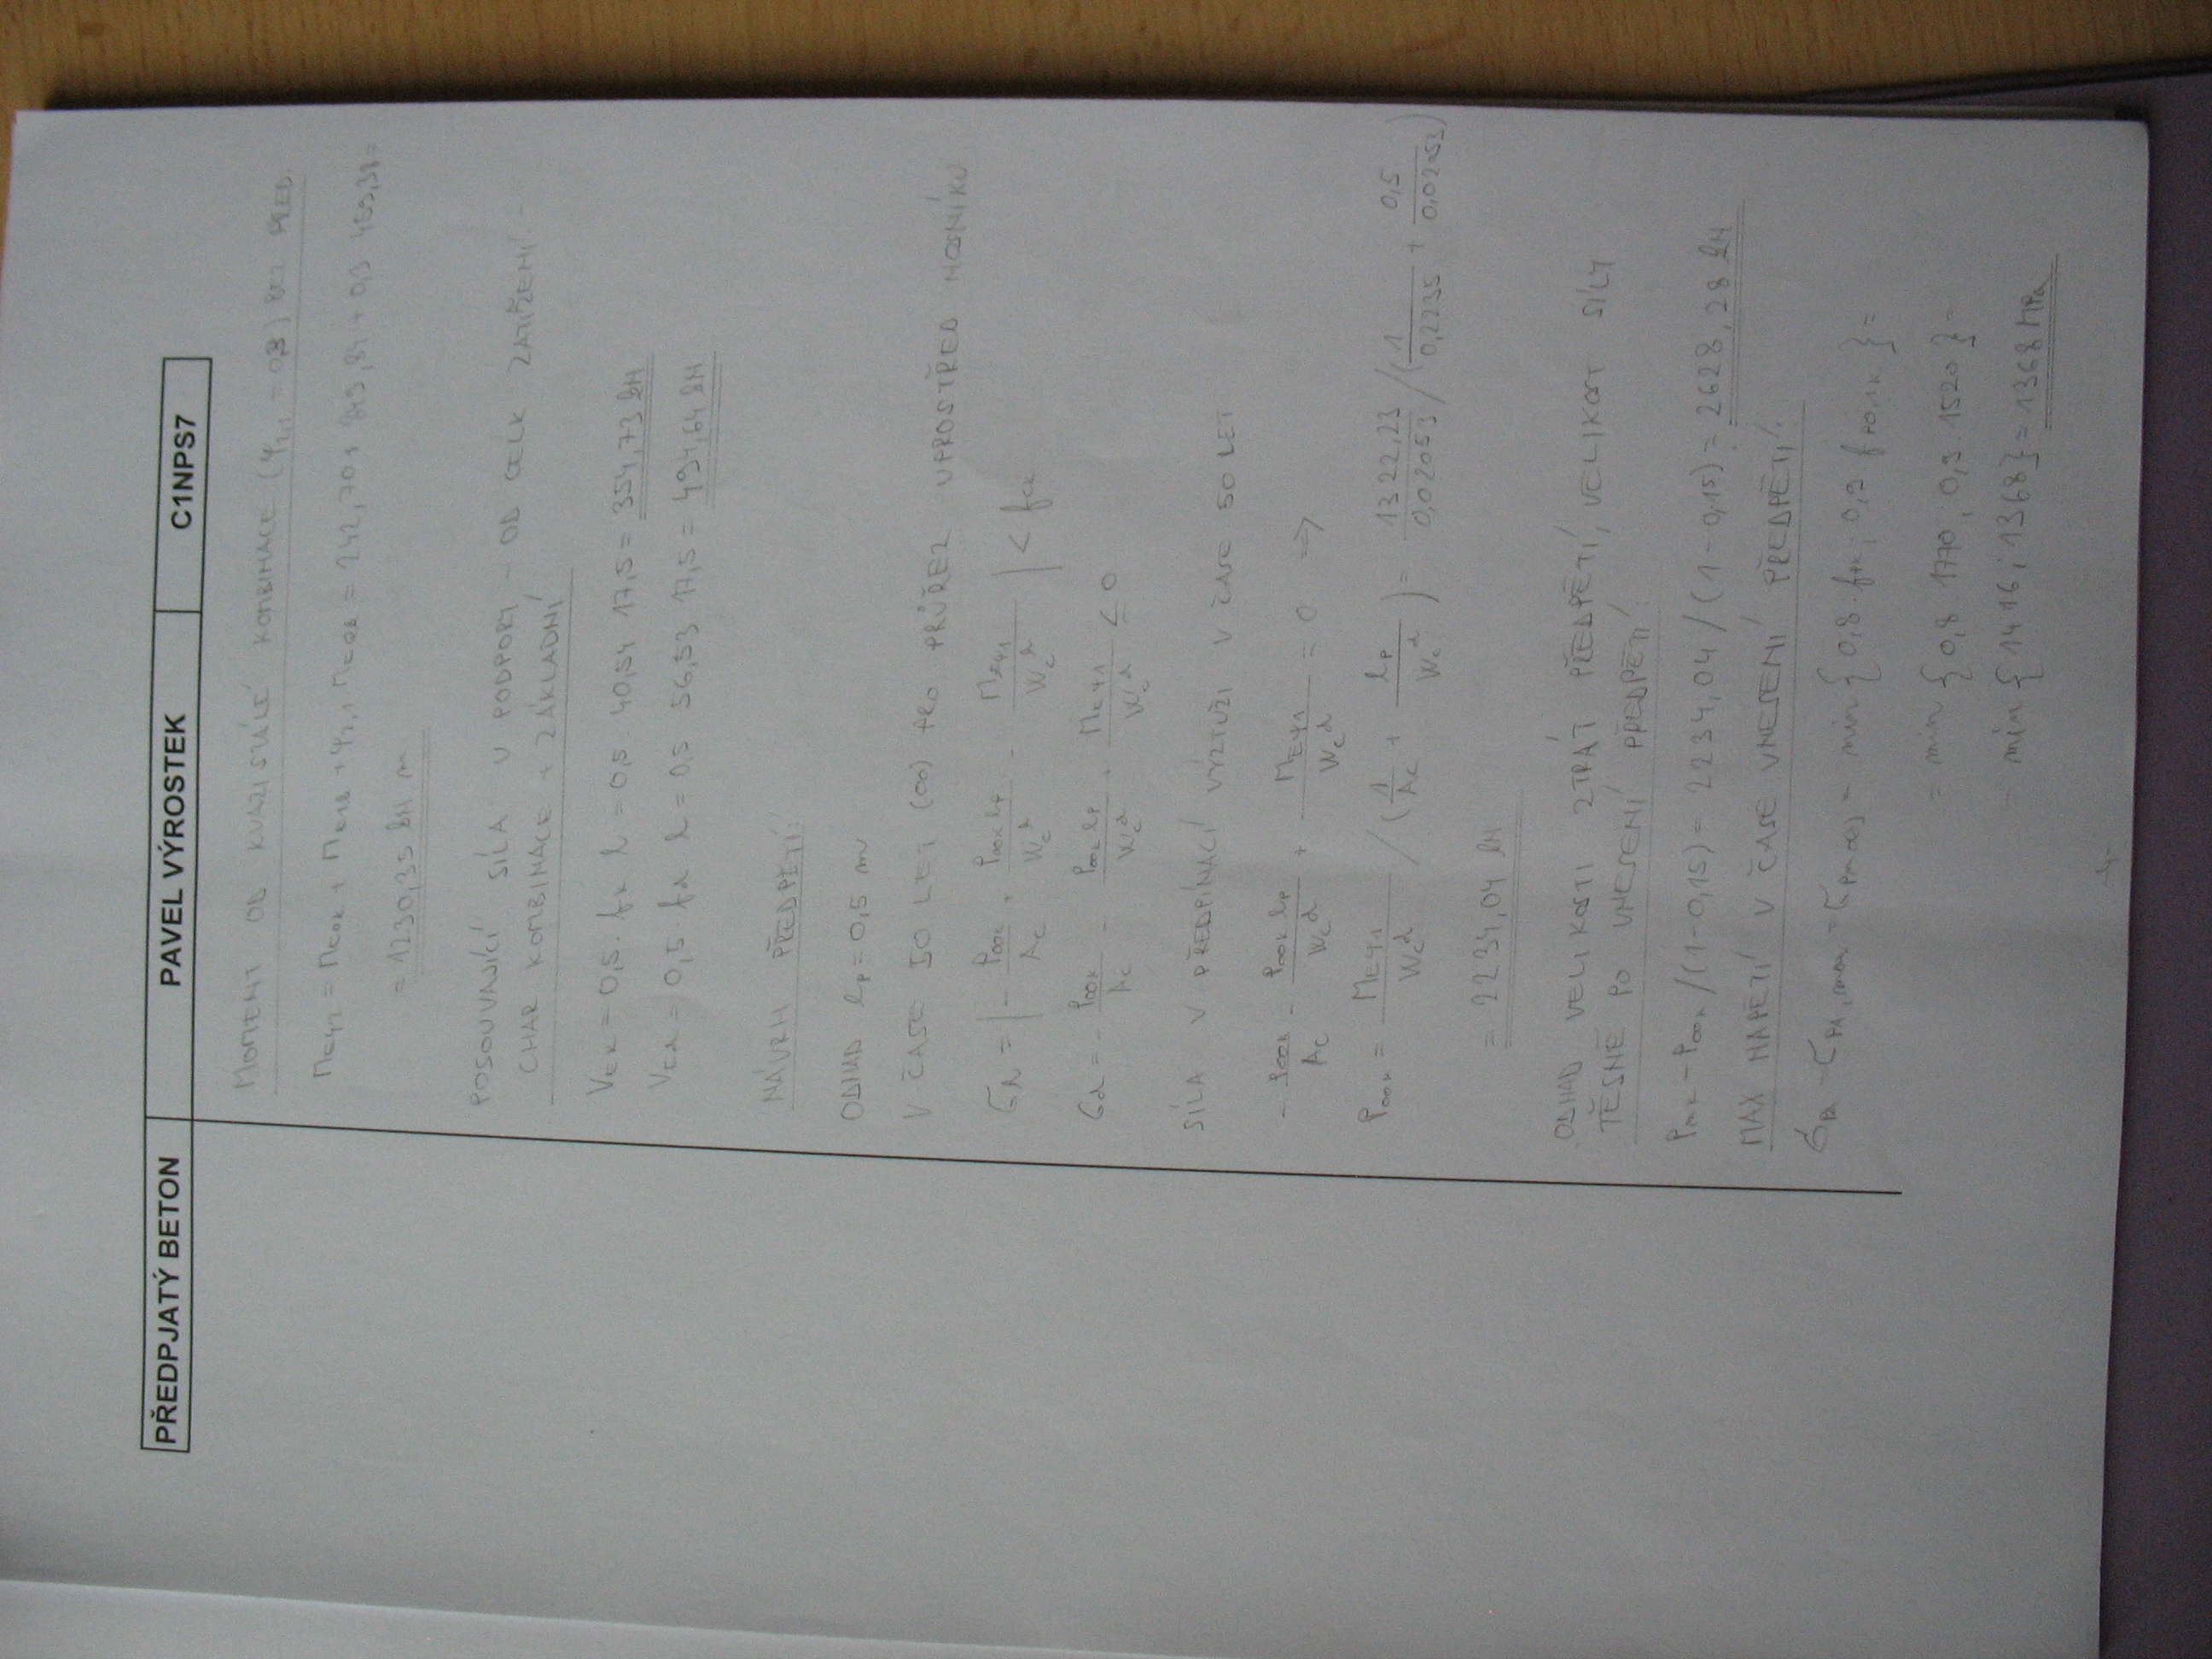 PŘEDPJATÝ BETON PAVEL VÝROSTEK C1NPS7
MOMENT OD KVAZISTÁLÉ KOMBINACE (Ψ2,1 = 0,3) BEZ PŘED.
= 242,70 + 849,84 + 0,3 · 459,38 =
= 1230,35 kN m
POSOUVAJÍCÍ SÍLA V PODPOŘE - OD CELK ZATÍŽENÍ -
CHAR KOMBINACE + ZÁKLADNÍ
VEk = 0,5 · fk l = 0,5 40,54 17,5 = 354,73 kN
VEd = 0,5 · fd l = 0,5 56,53 17,5 = 494,64 kN
NÁVRH PŘEDPĚTÍ:
ODHAD ep = 0,5 m
V ČASE 50 LET (∞) PRO PRŮŘEZ UPROSTŘED NOSNÍKU
σh = | - P∞k/Ac + P∞k ep/Wch - MEk1/Wch | < fcd
σd = - P∞k/Ac - P∞k ep/Wcd + MEk1/Wcd ≤ 0
SÍLA V PŘEDPÍNACÍ VÝZTUŽI V ČASE 50 LET
- P∞k/Ac - P∞k ep/Wcd + MEk1/Wcd = 0 =>
P∞k = MEk1/Wcd / (1/Ac + ep/Wcd) = 1322,23/0,02053 / (1/0,2235 + 0,5/0,02053)
= 2234,04 kN
ODHAD VELIKOSTI ZTRÁT PŘEDPĚTÍ, VELIKOST SÍLY
TĚSNĚ PO VNESENÍ PŘEDPĚTÍ:
Pmk = P∞k / (1-0,15) = 2234,04 / (1-0,15) = 2628,28 kN
MAX NAPĚTÍ V ČASE VNESENÍ PŘEDPĚTÍ:
= min {0,8 · fpk; 0,9 fp0,1k} =
= min {0,8 1770, 0,9 1520} =
= min {1416; 1368} = 1368 MPa